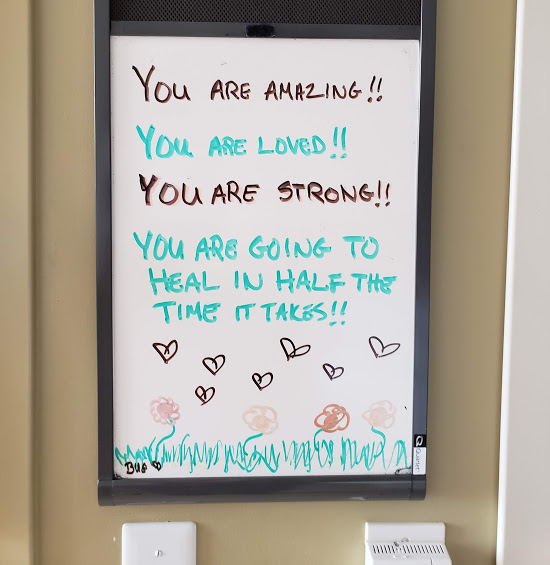 YOU ARE AMAZING!!
YOU ARE LOVED!!
YOU ARE STRONG!!
YOU ARE GOING TO
HEAL IN HALF THE
TIME IT TAKES!!
BUG
Quartet